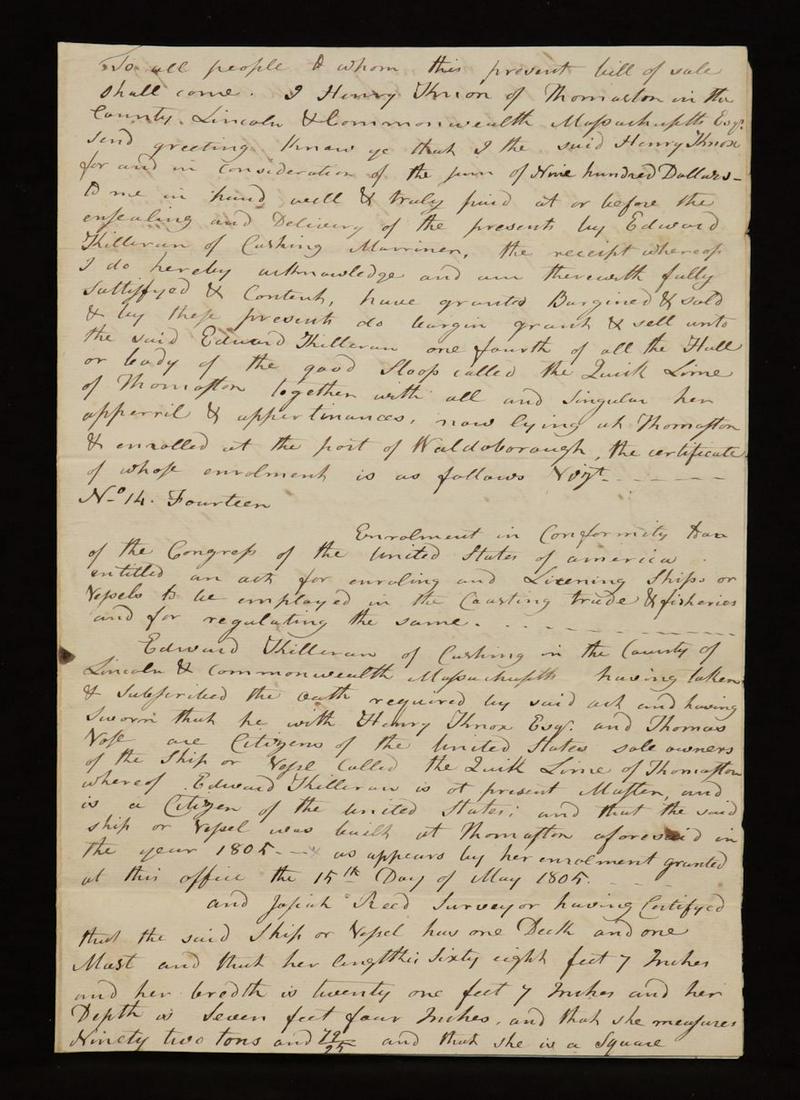 To all people to whom this present bill of sale
shall come. I Henry Knox of Thomaston in the
County Lincoln & Commonwealth Massachusetts Esqr.
send greeting Know ye that I the said Henry Knox
for and in Consideration of the sum of Nine hundred Dollars -
to me in hand well & truly paid at or before the
ensealing and Delivery of the presents by Edward
Killeran of Cushing Marriner, the receipt whereof
I do hereby acknowledge and am therewith fully
sattisfyed & Content, have granted Bargined & sold
& by these presents do bargin grant & sell unto
the said Edward Killeran one fourth of all the Hull
or body of the good Sloop called the Quik Lime
of Thomaston together with all and Singular her
apperril & appertinances, now lying at Thomaston
& enrolled at the port of Waldoborough, the certificate
of whose enrolment is as follows Vizt. - - - - -
No. 14. Fourteen
Enrolment in Conformity to an
of the Congress of the United States of america
entitled an act for enroling and Licening Ships or
Vessels to be employed in the Coasting trade & fisheries
and for regulating the same. - - - - -
Edward Killeran of Cushing in the County of
Lincoln & Commonwealth Massachusetts having taken
& Subscribed the oath required by said act and having
Sworn that he with Henry Knox Esqr. and Thomas
Vose are Citizens of the United States sole owners
of the Ship or Vessel Called the Quik Lime of Thomaston
whereof Edward Killeran is at present Master, and
is a Citizen of the United States; and that the said
ship or Vessel was built at Thomaston aforesaid in
the year 1805 - - as appears by her enrolment granted
at this office the 15th Day of May 1805. - - -
and Josiah Reed Surveyor having Certifyed
that the said Ship or Vessel has one Deck and one
Mast and that her length is Sixty eight feet 7 Inches
and her bredth is twenty one feet 7 Inches and her
Depth is Seven feet four Inches, and that she measures
Ninety two tons and 72/95 and that she is a Square